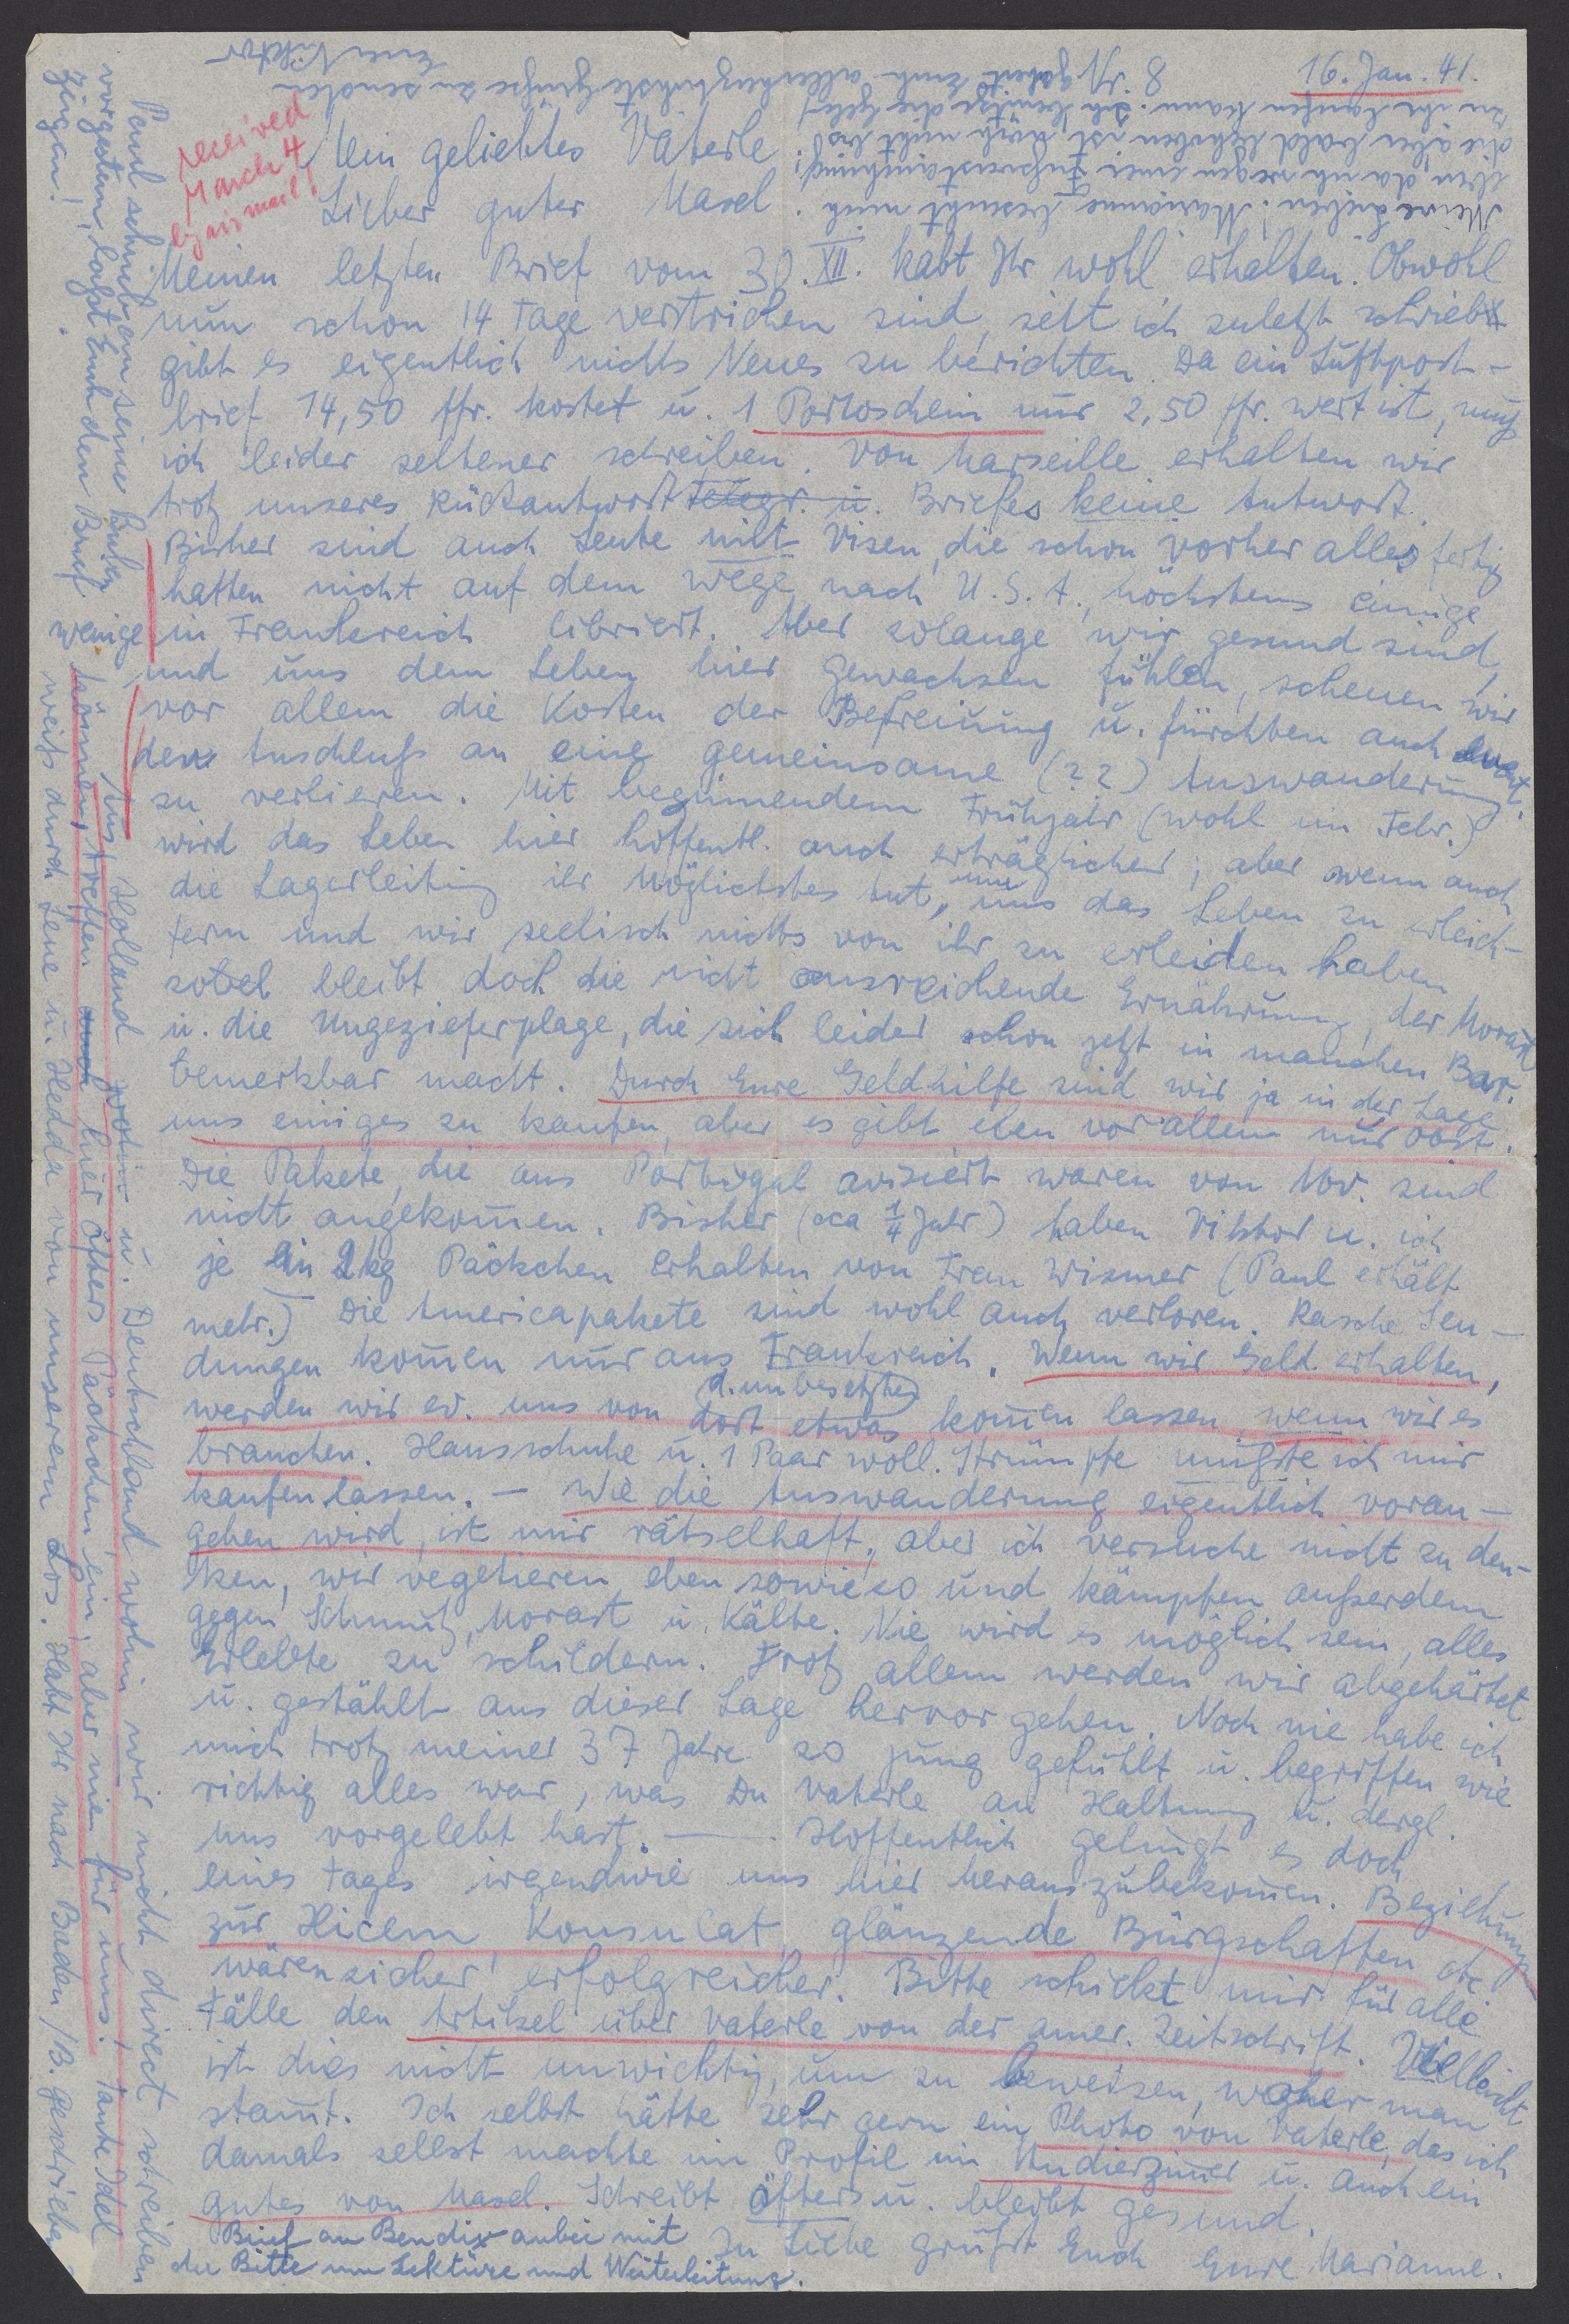 16. Jan. 41.
received
March 4
by air mail!
Mein geliebtes Vaterle
Lieber guter Masel.
Meinen letzten Brief vom 30. XII. habt Ihr wohl erhalten. Obwohl
nun schon 14 Tage verstrichen sind, seit ich zuletzt schrieb,
gibt es eigentlich nichts Neues zu berichten. Da ein Luftpost-
brief 14,50 ffr. kostet u. 1 Portoschein nur 2,50 ffr. wert ist, muß
ich leider seltener schreiben. Von Marseille erhalten wir
trotz unseres Rückantwort Telegr. u. Briefes keine Antwort.
Bisher sind auch Leute mit Visen, die schon vorher alles fertig
hatten nicht auf dem Wege nach U.S.A., höchstens einige
wenige in Frankreich libriert. Aber solange wir gesund sind,
und uns dem Leben hier gewachsen fühlen, scheuen wir
vor allem die Kosten der Befreiung u. fürchten auch event.
den Anschluß an eine gemeinsame (??) Auswanderung
zu verlieren. Mit beginnendem Frühjahr (wohl im Febr.)
wird das Leben hier hoffentl. auch erträglicher; aber wenn auch
die Lagerleitung ihr Möglichstes tut, um uns das Leben zu erleich-
tern und wir seelisch nichts von ihr zu erleiden haben
bleibt doch die nicht ausreichende Ernährung, der Morast
u. die Ungezieferplage, die sich leider schon jetzt in manchen Bar.
bemerkbar macht. Durch Eure Geldhilfe sind wir ja in der Lage
uns einiges zu kaufen, aber es gibt eben vor allem nur Obst.
Die Pakete, die aus Portugal avisiert waren von Nov. sind
nicht angekommen. Bisher (cca 1/4 Jahr) haben Viktor u. ich
je ein 2kg Päckchen erhalten von Frau Wismer (Paul erhält
mehr.) Die Americapakete sind wohl auch verloren. Rasche Sen-
dungen kommen nur aus Frankreich. Wenn wir Geld erhalten,
d. unbesetzten
werden wir ev. uns von dort etwas kommen lassen, wenn wir es
brauchen. Hausschuhe u. 1 Paar woll. Strümpfe mußte ich mir
kaufen lassen. – Wie die Auswanderung eigentlich voran-
gehen wird, ist mir rätselhaft, aber ich versuche nicht zu den-
ken, wir vegetieren eben sowieso und kämpfen außerdem
gegen Schmutz, Morast u. Kälte. Nie wird es möglich sein, alles
Erlebte zu schildern. Trotz allem werden wir abgehärtet
u. gestählt aus dieser Lage hervor gehen. Noch nie habe ich
mich trotz meiner 37 Jahre so jung gefühlt u. begriffen wie
richtig alles war, was Du Vaterle an Haltung u. dergl.
uns vorgelebt hast. – Hoffentlich gelingt es doch
eines Tages irgendwie uns hier herauszubekommen. Beziehungen
zur Hicem, Konsulat, glänzende Bürgschaften etc
wären sicher erfolgreicher. Bitte schickt mir für alle
Fälle den Artikel über Vaterle von der amer. Zeitschrift. Vielleicht
ist dies nicht unwichtig, um zu beweisen, woher man
stammt. Ich selbst hätte sehr gern ein Photo von Vaterle, das ich
damals selbst machte im Profil im Studierzimmer u. auch ein
gutes von Masel. Schreibt öfters u. bleibt gesund.
In Liebe grüßt Euch Eure Marianne.
Brief an Bendix anbei mit
der Bitte um Lektüre und Weiterleitung.
Aus Holland wohin u. Deutschland wohin wir nicht direct schreiben
können, treffen hier öfters Päckchen ein, aber nie für uns. Tante Idel
weiß durch Lene u. Hedda von unserem Los. Habt Ihr nach Baden/B. geschrieben
Paul schrieb an seine
vorgestern, laßt Euch den Brief
zeigen!
Meine Lieben! Marianne besucht mich
eben, da ich wegen einer Fußverstauchung,
die aber bald behoben ist, noch nicht bis
zu ihr laufen kann. Ich benütze die Gele-
genheit Euch allerherzlichste Grüße zu senden
Euer Viktor